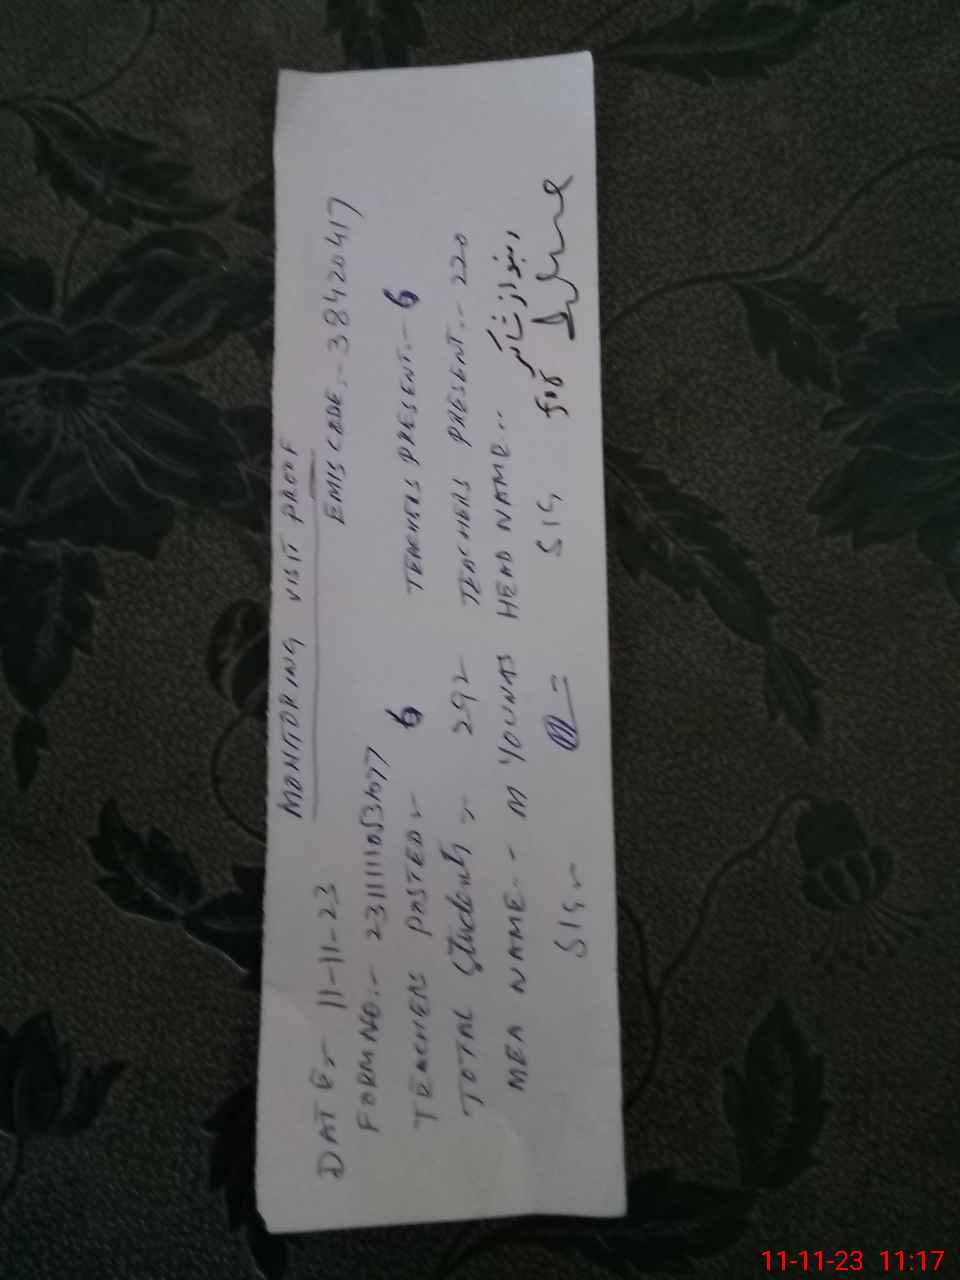 MONITORING VISIT PROOF
DATE:- 11-11-23 EMIS CODE:- 38420417
FORM NO:-
TEACHERS POSTED:- 6 TEACHERS PRESENT:- 6
TOTAL students:- 292 TEACHERS PRESENT:- 220
MEA NAME:- M YOUNAS HEAD NAME:-
SIG:- SIG
11-11-23 11:17